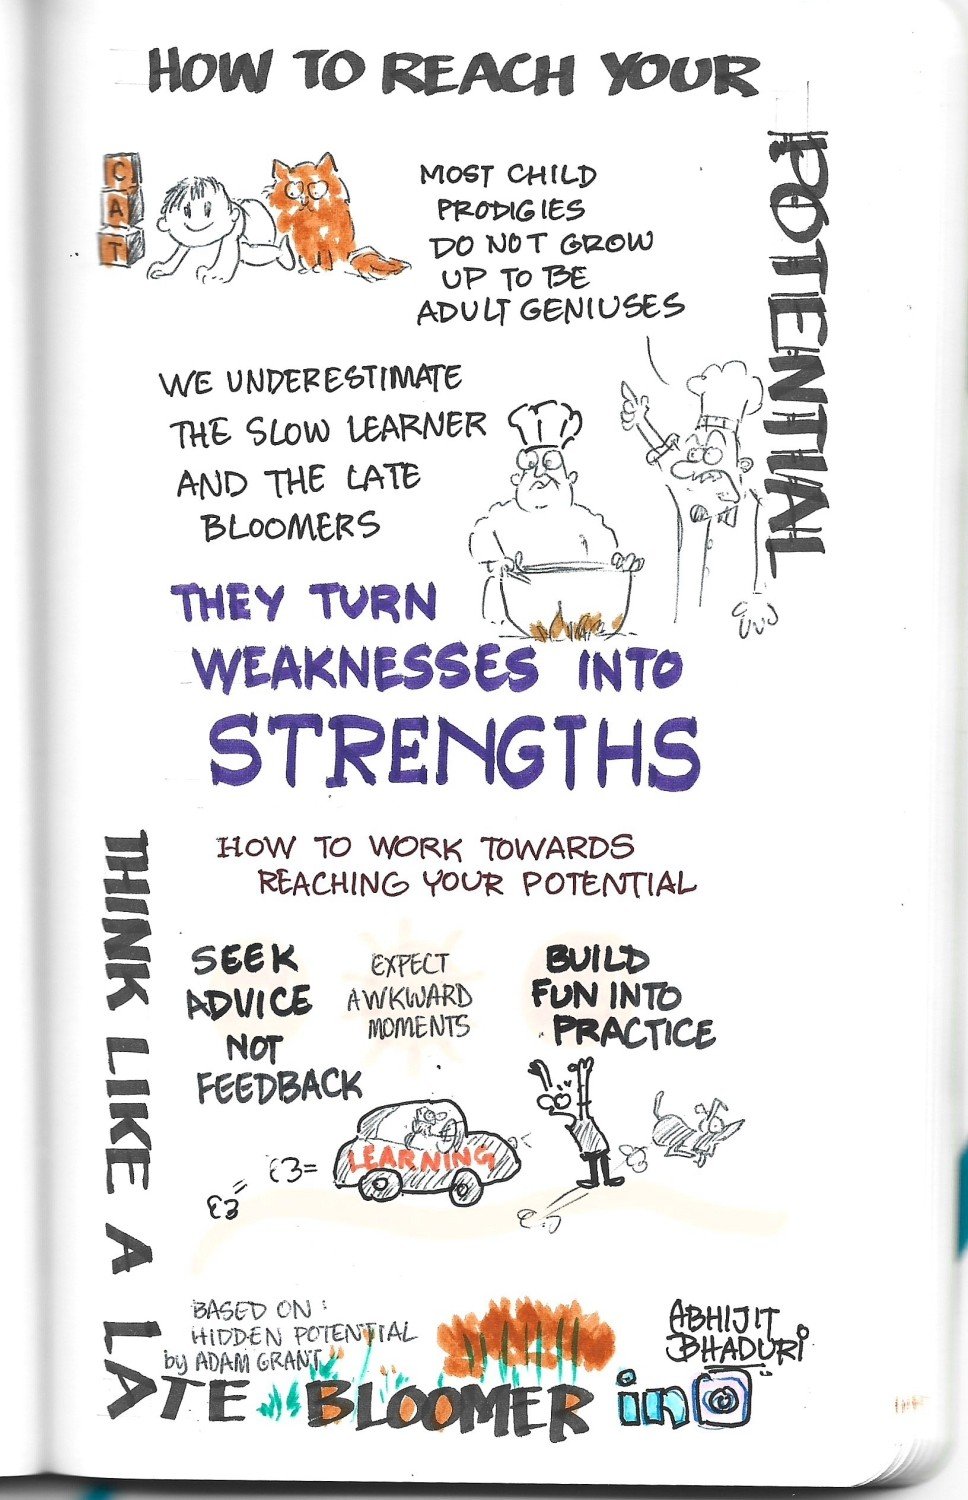 HOW TO REACH YOUR
POTENTIAL
CAT
MOST CHILD
PRODIGIES
DO NOT GROW
UP TO BE
ADULT GENIUSES
WE UNDERESTIMATE
THE SLOW LEARNER
AND THE LATE
BLOOMERS
THEY TURN
WEAKNESSES INTO
STRENGTHS
HOW TO WORK TOWARDS
REACHING YOUR POTENTIAL
SEEK
ADVICE
NOT
FEEDBACK
EXPECT
AWKWARD
MOMENTS
BUILD
FUN INTO
PRACTICE
LEARNING
THINK LIKE A LATE BLOOMER
BASED ON:
HIDDEN POTENTIAL
by ADAM GRANT
ABHIJIT
BHADURI
in